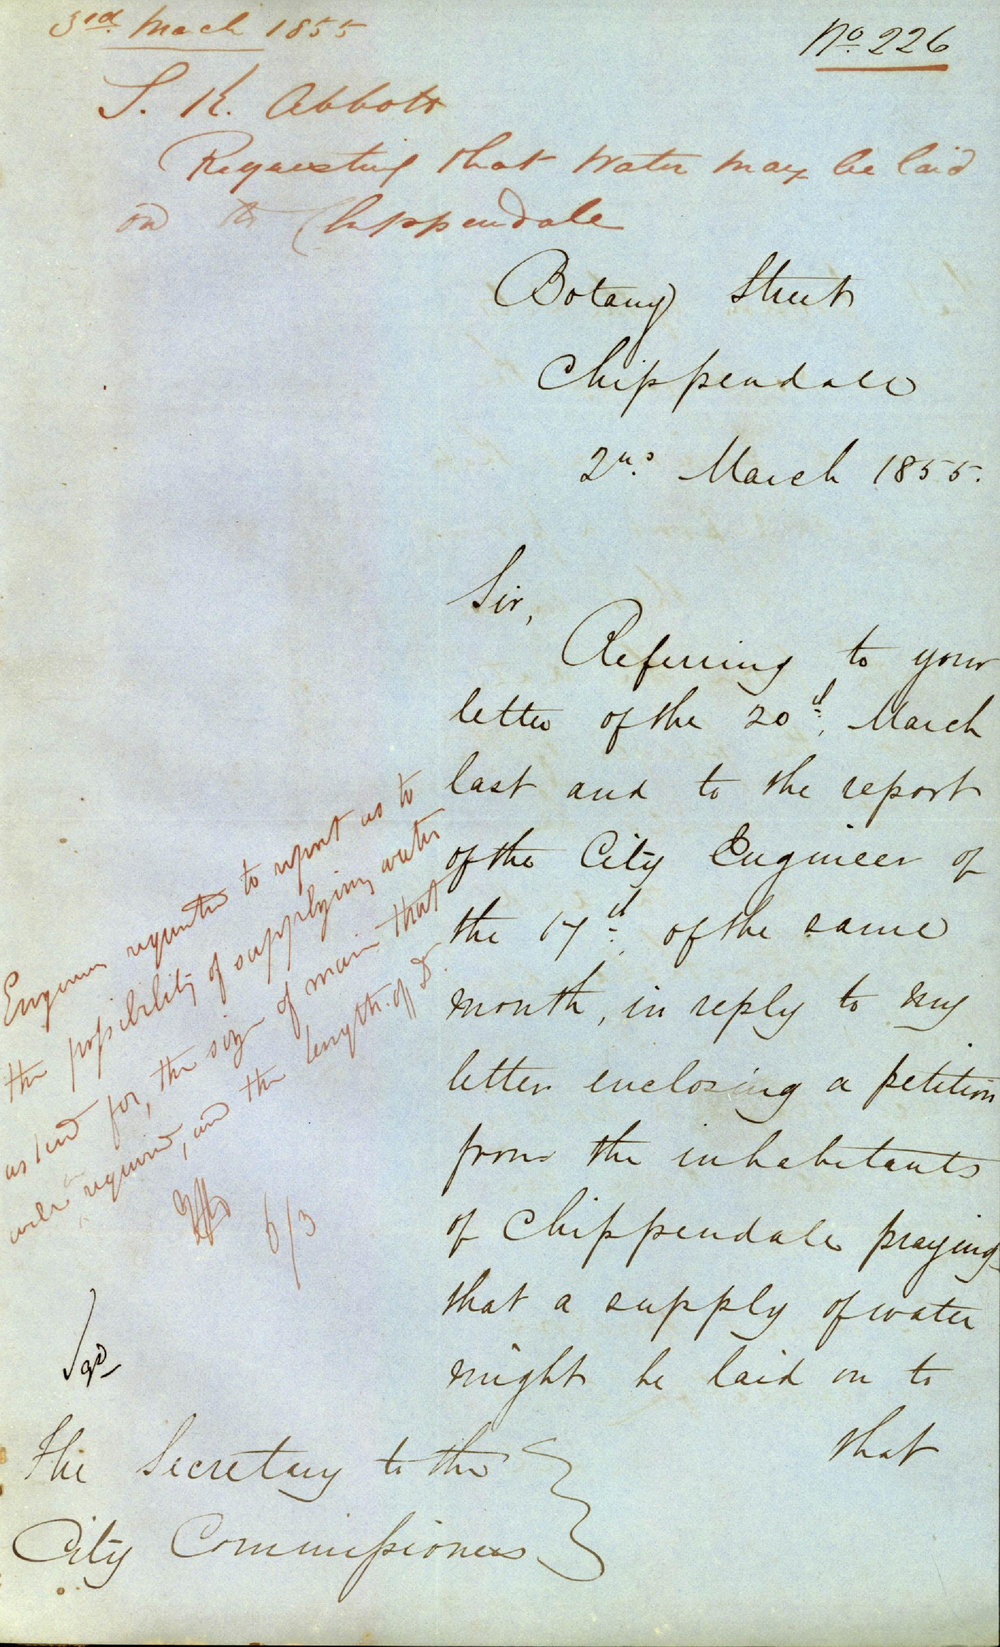 3rd. March 1855
No. 226
S. K. Abbott
Requesting that water may be laid
on to Chippendale
Botany Street
Chippendale
2nd. March 1855.
Sir,
Referring to your
letter of the 20th. March
last and to the report
of the City Engineer of
the 17th. of the same
month, in reply to my
letter enclosing a petition
from the inhabitants
of Chippendale praying
that a supply of water
might be laid on to
that
Engineer requested to report as to
the possibility of supplying water
asked for, the size of main that
will required, and the length of Do.
6/3
The Secretary to the
City Commissioners